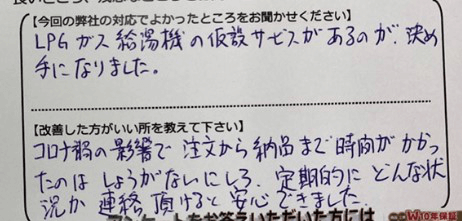 【今回の弊社の対応でよかったところをお聞かせください】
LPGガス給湯機の仮設サービスがあるのが、決め
手になりました。
【改善した方がいい所を教えて下さい】
コロナ禍の影響で注文から納品まで時間がかかっ
たのはしょうがないにしろ、定期的にどんな状
況か連絡頂けると安心できました。
アンケートをお答えいただいた方には
10年保証